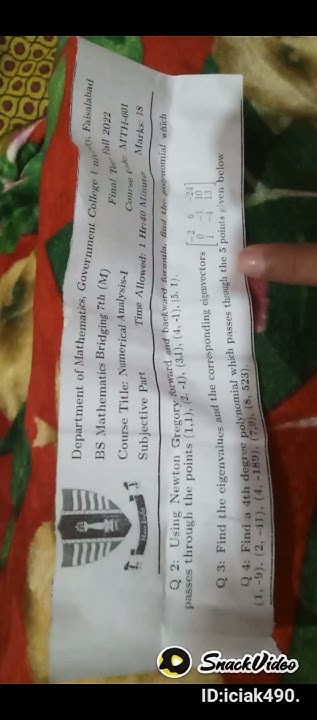 Department of Mathematics, Government College University, Faisalabad
BS Mathematics Bridging 7th (M)
Final Term Fall 2022
Course Title: Numerical Analysis-I
Course Code: MTH-601
Subjective Part
Time Allowed: 1 Hr:40 Minute
Marks: 18
Q 2: Using Newton Gregory forward and backward formula, find the polynomial which
passes through the points (1,1), (2, -1), (3,1), (4, -1), (5, 1).
Q 3: Find the eigenvalues and the corresponding eigenvectors
-2 0 -24
0 -3 10
1 -4 13
Q 4: Find a 4th degree polynomial which passes through the 5 points given below
(1, -9), (2, -41), (4, -189), (7,9), (8, 523).
SnackVideo
ID:iciak490.